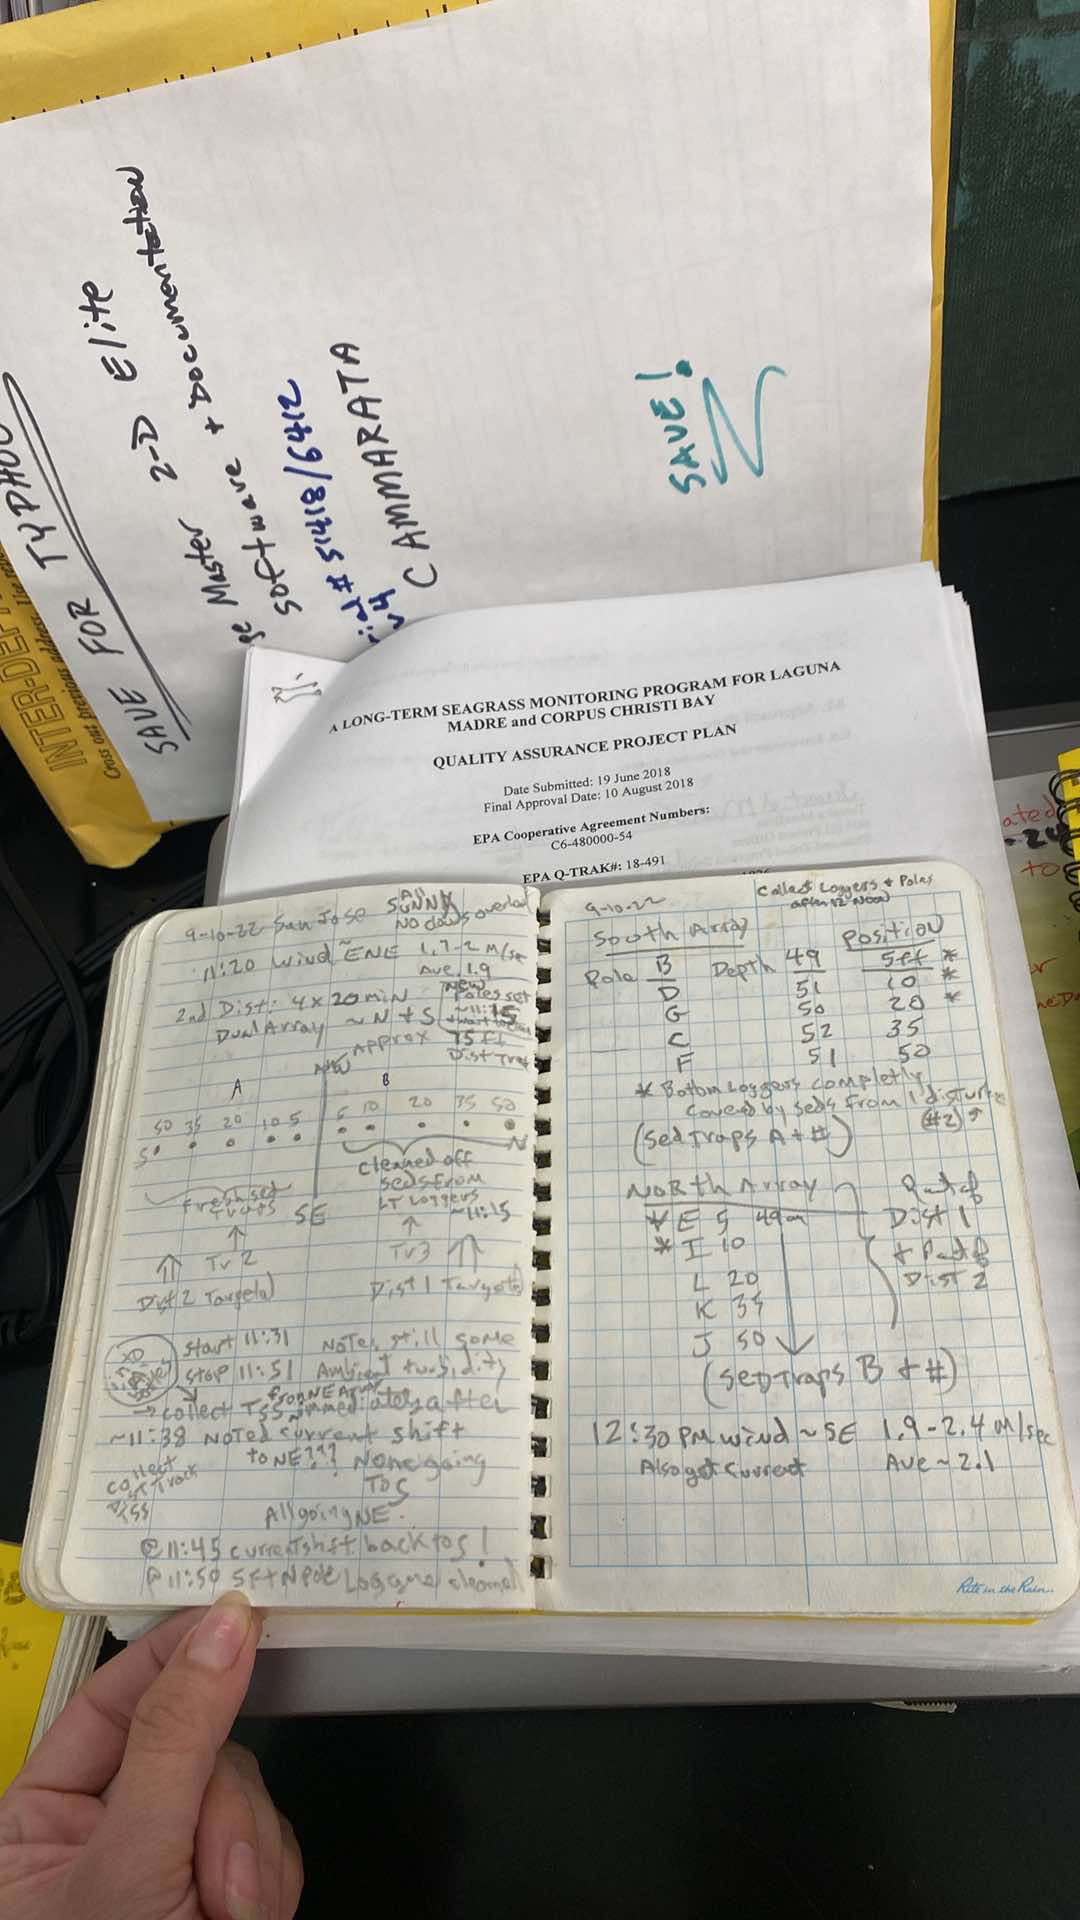 INTER-DEP
Cross out previous address.
SAVE FOR TYPHOO
Master 2-D Elite
Software + Documentation
# 51418/6412
CAMMARATA
SAVE!
A LONG-TERM SEAGRASS MONITORING PROGRAM FOR LAGUNA
MADRE and CORPUS CHRISTI BAY
QUALITY ASSURANCE PROJECT PLAN
Date Submitted: 19 June 2018
Final Approval Date: 10 August 2018
EPA Cooperative Agreement Numbers:
C6-480000-54
EPA Q-TRAK#: 18-491
ated
-24
to
9-10-22 San Jose All SUNNY
No clouds overlay
11:20 wind ~ENE 1.7-2 m/sec
Ave. 1.9
2nd Dist: 4 x 20 min
New Poles set
~11:15
Dual Array ~N + S
Approx 75 ft
Dist Trea
NW
A B
50 35 20 10 5 5 10 20 35 50
S N
Fresh sed
Traps
SE
cleaned off
seds from
LT Loggers
~11:15
Tr 2 Tr 3
Dist 2 Targeted Dist 1 Targeted
start 11:31 Note, still some
stop 11:51 Ambient turbidity
from NE Array
→ collect TSS immediately after
~11:38 Noted current shift
to NE??? None going
TO S
collect
TSS
All going NE.
@ 11:45 current shift back to S!
@ 11:50 5ft N pole Loggers cleaned
9-10-22
Collect Loggers + Poles
after 12 Noon
South Array Position
Pole B Depth 49 5ft *
D 51 10 *
G 50 20 *
C 52 35
F 51 50
* Bottom Loggers completly
covered by seds from 1 disturbe
(#2)
(Sed Traps A + #)
North Array
* E 5 49cm
* I 10
L 20
K 35
J 50
Part of
Dist 1
+ Part of
Dist 2
(Sed Traps B + #)
12:30 PM wind ~ SE 1.9 - 2.4 m/sec
Also got current Ave ~ 2.1
Rite in the Rain